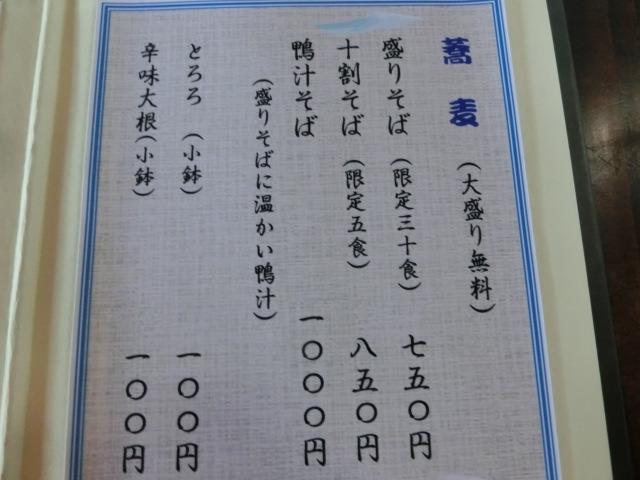 蕎麦
（大盛り無料）
盛りそば（限定三十食）七五〇円
十割そば（限定五食）八五〇円
鴨汁そば 一〇〇〇円
（盛りそばに温かい鴨汁）
とろろ（小鉢）一〇〇円
辛味大根（小鉢）一〇〇円